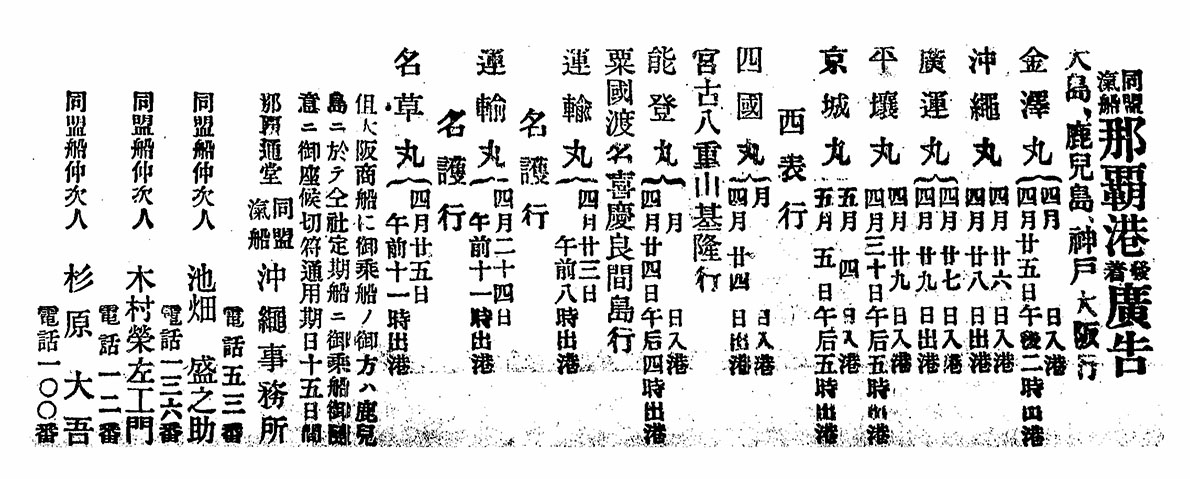 同盟滊船 那覇港發着廣告
大島、鹿兒島、神戸大阪行
金澤丸 四月 日入港
四月廿五日午後二時出港
沖繩丸 四月廿六日入港
四月廿八日出港
廣運丸 四月廿七日入港
四月廿九日出港
平壤丸 四月廿九日入港
四月三十日午后五時出港
京城丸 五月四日入港
五月五日午后五時出港
西表行
四國丸 月 日入港
四月廿四日出港
宮古八重山基隆行
能登丸 月 日入港
四月廿四日午后四時出港
粟國渡名喜慶良間島行
運輸丸 四月廿三日
午前八時出港
名護行
運輸丸 四月二十四日
午前十一時出港
名護行
名草丸 四月廿五日
午前十一時出港
但大阪商船に御乘船ノ御方ハ鹿兒
島ニ於テ仝社定期船ニ御乘船御隨
意ニ御座候切符通用期日十五日間
那覇通堂 同盟滊船 沖繩事務所
電話五三番
同盟船仲次人 池畑盛之助
電話一三六番
同盟船仲次人 木村榮左工門
電話一二番
同盟船仲次人 杉原大吾
電話一〇〇番